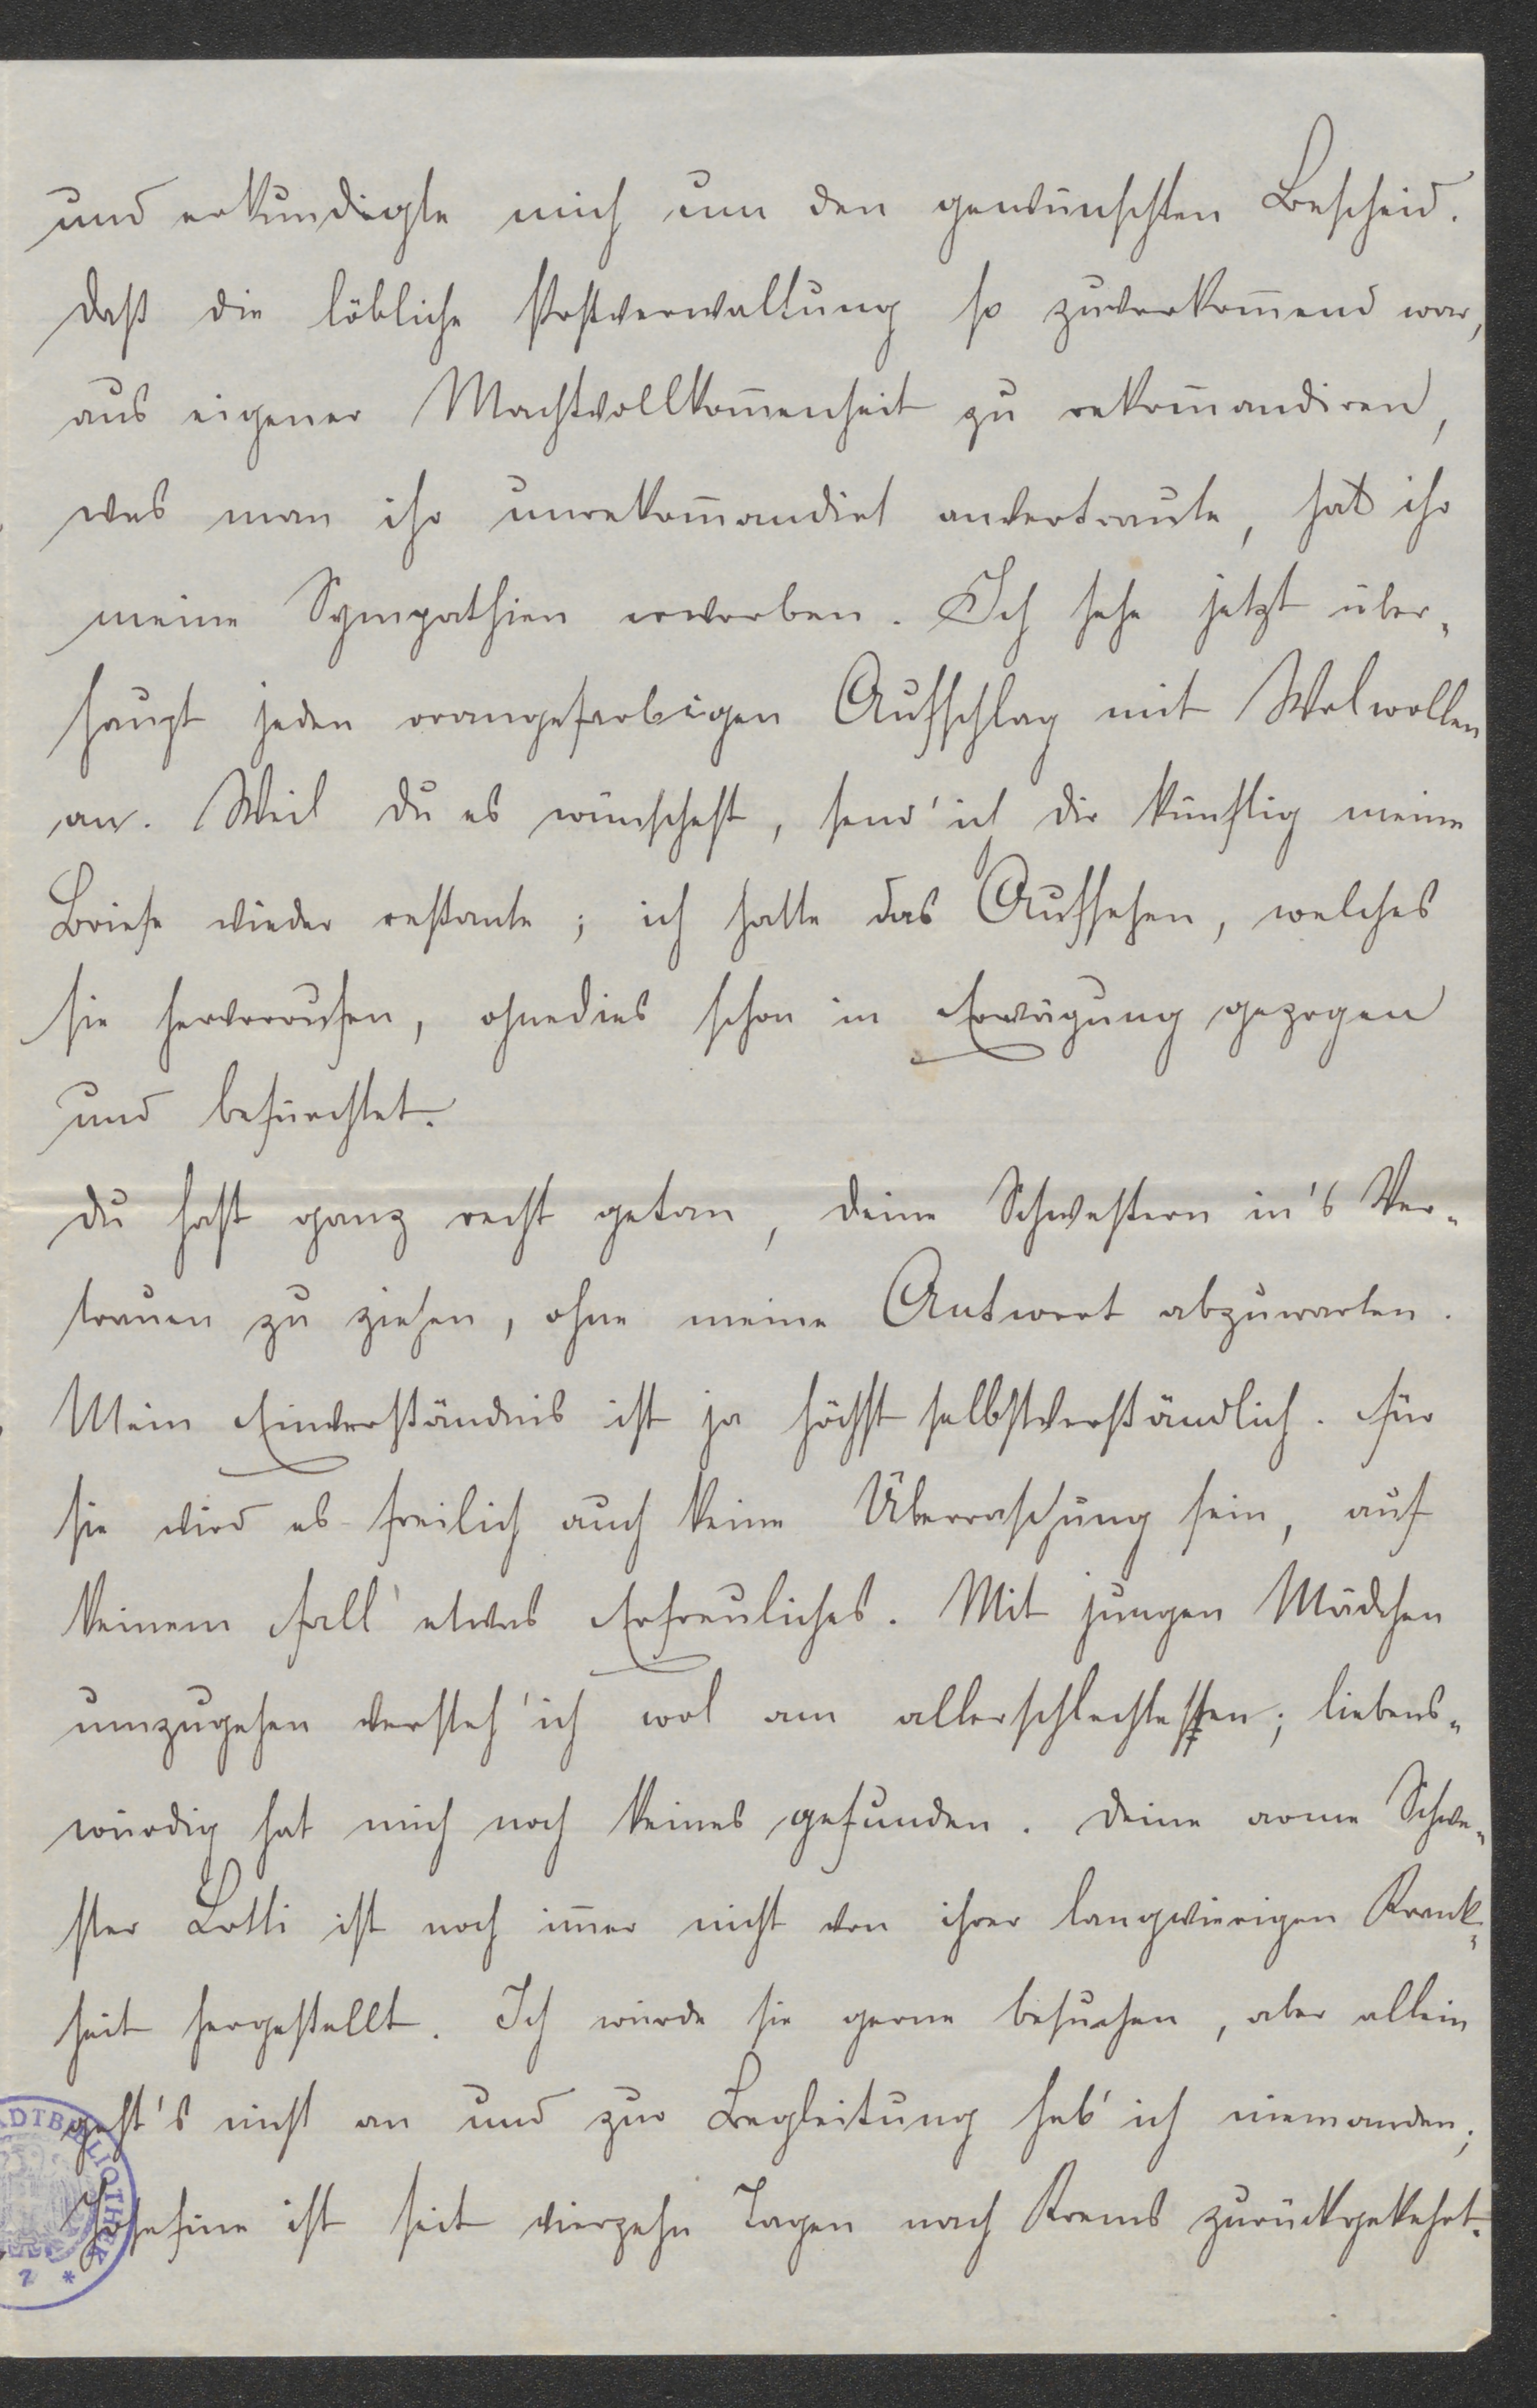 und erkundigte mich um den gewünschten Bescheid.
Daß die löbliche Postverwaltung so zuvorkom̄end war,
aus eigener Machtvollkom̄enheit zu rekom̄andiren,
was man ihr unrekom̄andirt anvertraute, hat ihr
meine Sympathien erworben. Ich sehe jetzt über-
haupt jeden orangefarbigen Aufschlag mit Wolwollen
an. Weil du es wünschest, send' ich dir künftig meine
Briefe wieder restante; ich hatte das Aufsehen, welches
sie hervorrufen, ohnedies schon in Erwägung gezogen
und befürchtet.
Du hast ganz recht getan, deine Schwestern in's Ver-
trauen zu ziehen, ohne meine Antwort abzuwarten.
Mein Einverständnis ist ja höchst selbstverständlich. Für
sie wird es freilich auch keine Überraschung sein, auf
keinem Fall etwas Erfreuliches. Mit jungen Mädchen
umzugehen versteh' ich wol am allerschlechtesten; liebens-
würdig hat mich noch keines gefunden. Deine arme Schwe-
ster Lotti ist noch im̄er nicht von ihrer langwierigen Krank-
heit hergestellt. Ich würde sie gerne besuchen, aber allein
geht's nicht an und zur Begleitung hab' ich niemanden;
Josefine ist seit vierzehn Tagen nach Krems zurückgekehrt.